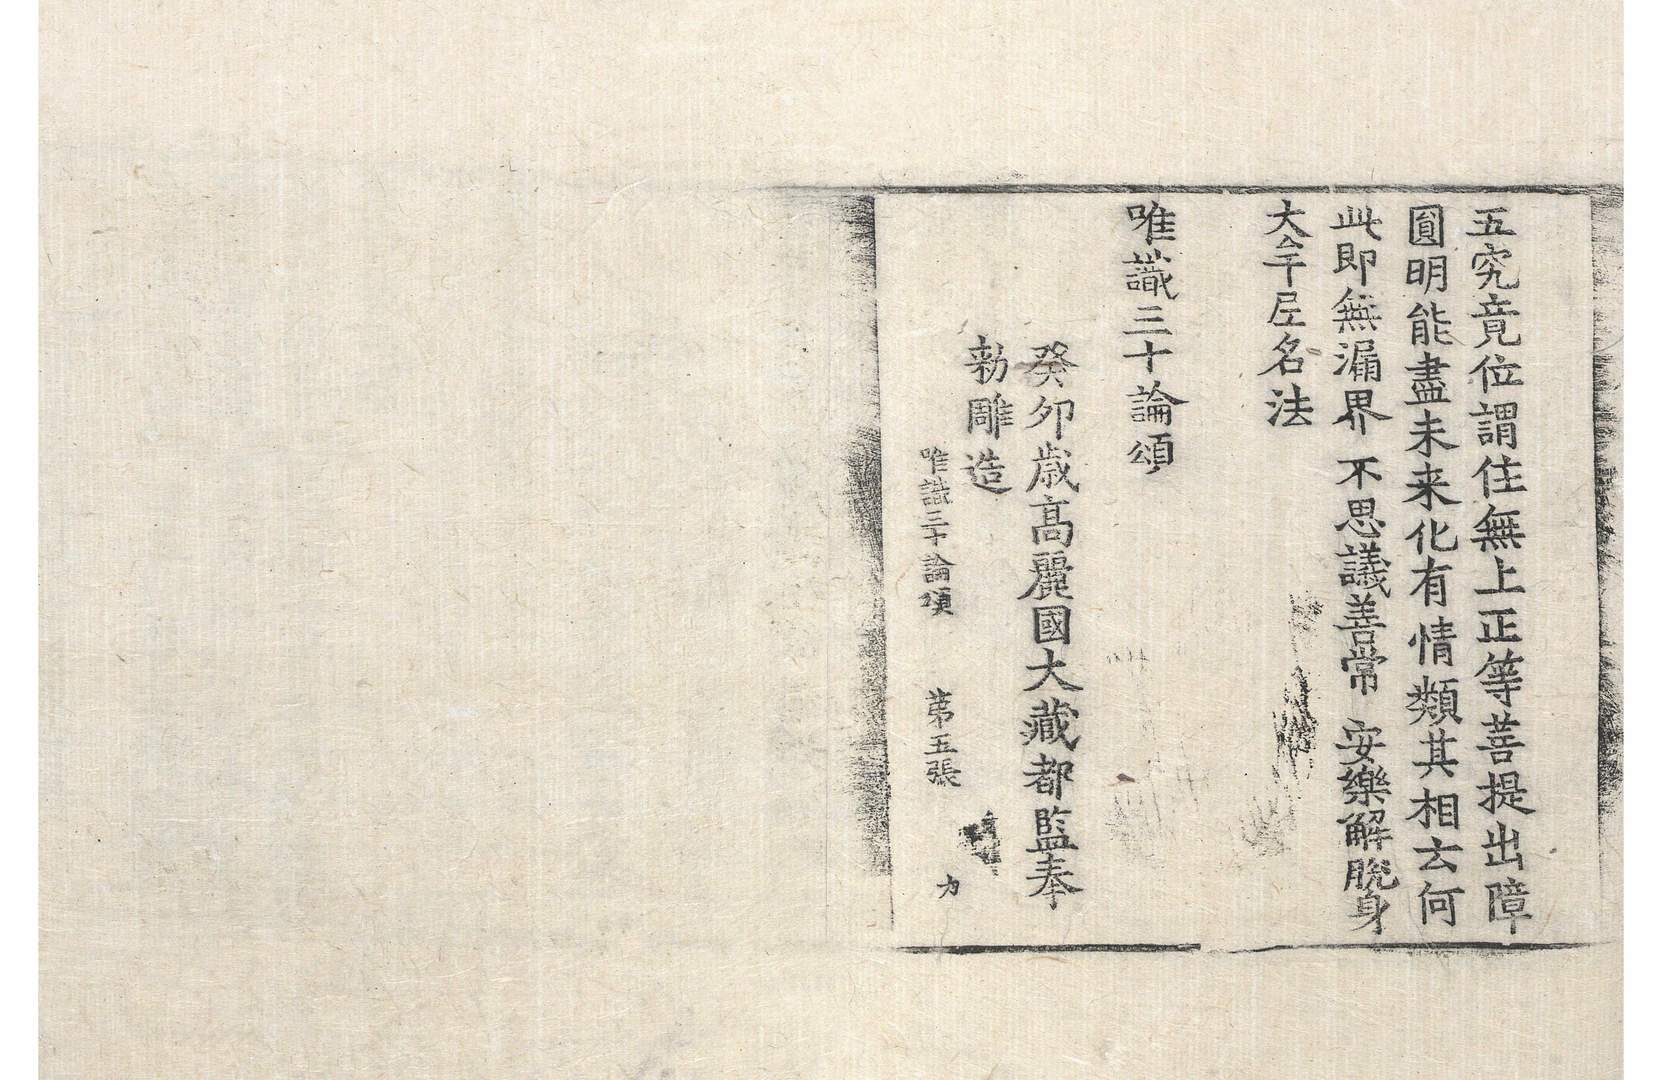 五究竟位謂住無上正等菩提出障
圓明能盡未来化有情類其相云何
此即無漏界 不思議善常 安樂解脫身
大牟尼名法
唯識三十論頌
癸卯歳高麗國大藏都監奉
勑雕造
唯識三十論頌 第五張 力